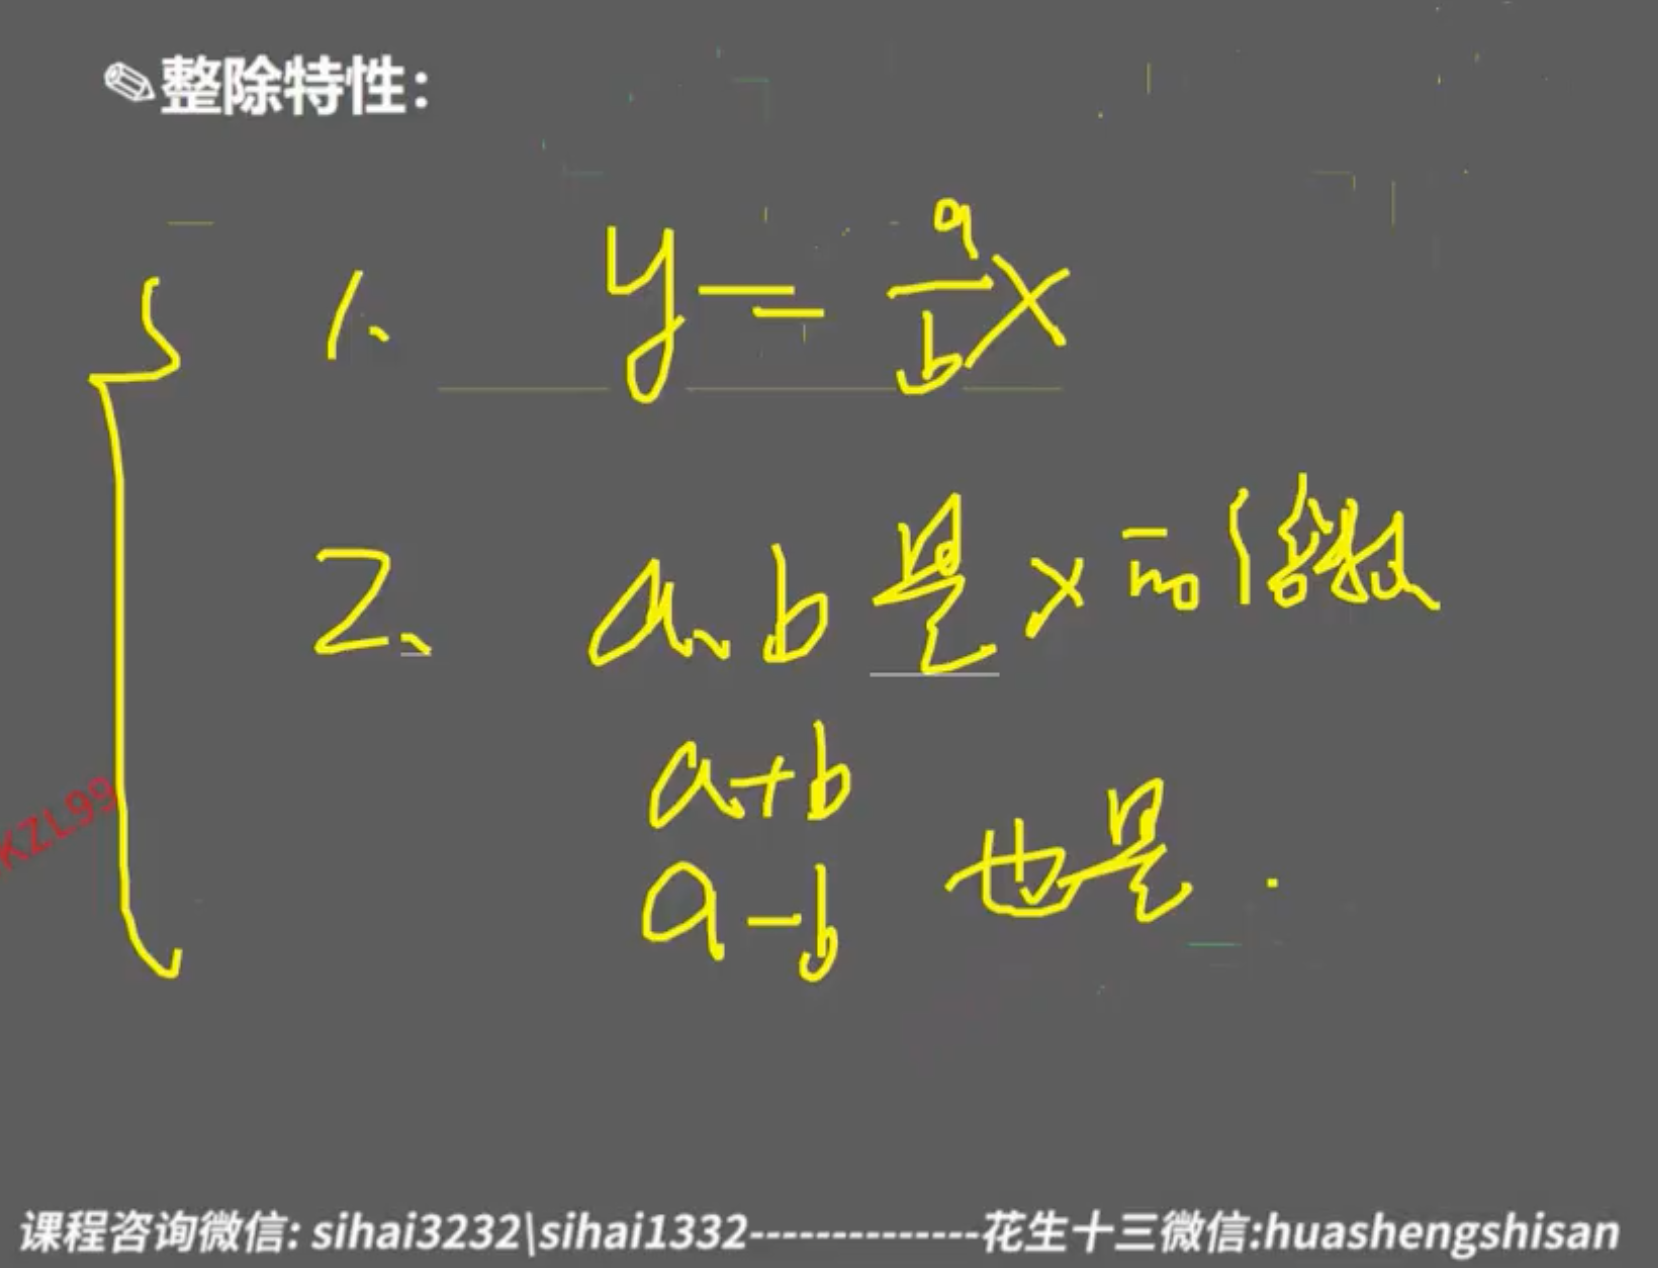 整除特性：
1、 y = a/b x
2、 a、b是x的倍数
a+b
a-b 也是.
KZL99
课程咨询微信: sihai3232\sihai1332-------------花生十三微信:huashengshisan